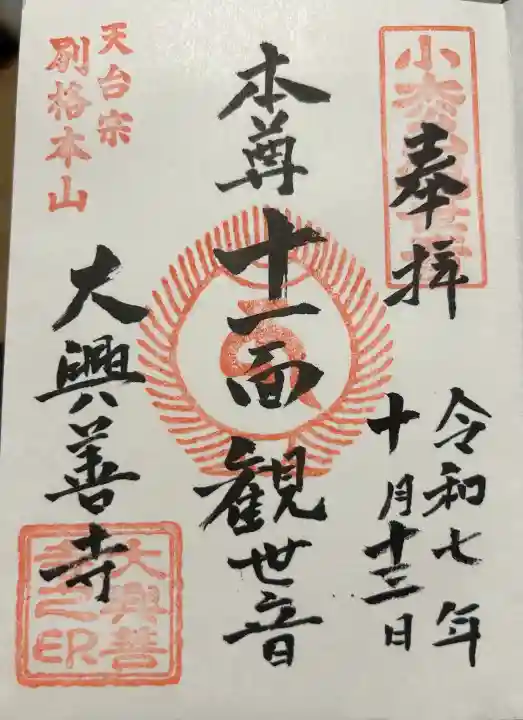 奉拝
令和七年
十月十三日
本尊
十一面観世音
天台宗
別格本山
大興善寺
大興善
寺之印